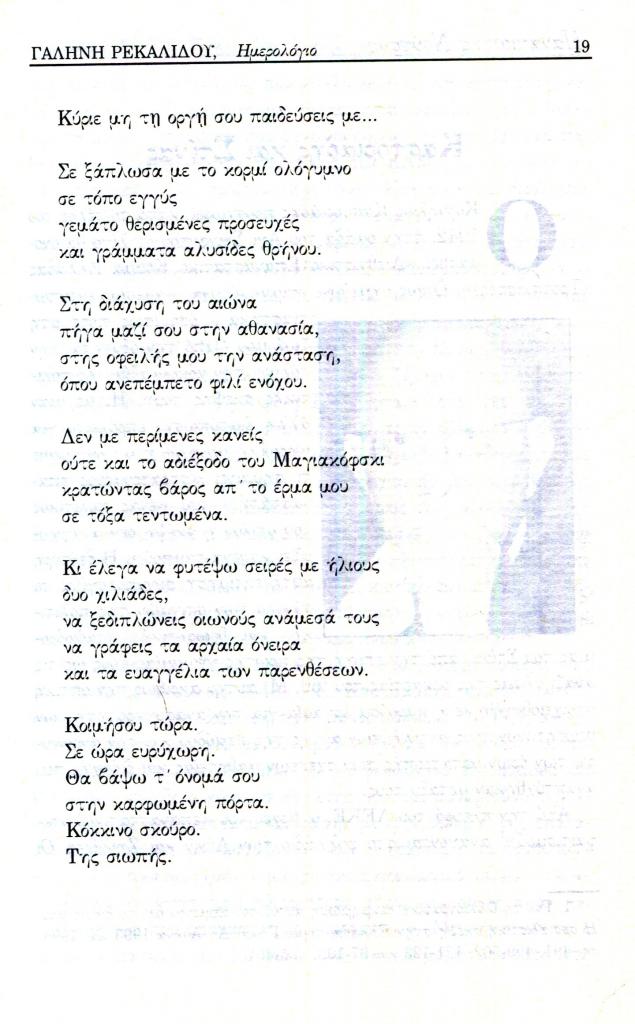 ΓΑΛΗΝΗ ΡΕΚΑΛΙΔΟΥ, Ημερολόγιο 19
Κύριε μη τη οργή σου παιδεύσεις με...
Σε ξάπλωσα με το κορμί ολόγυμνο
σε τόπο εγγύς
γεμάτο θερισμένες προσευχές
και γράμματα αλυσίδες θρήνου.
Στη διάχυση του αιώνα
πήγα μαζί σου στην αθανασία,
στης οφειλής μου την ανάσταση,
όπου ανεπέμπετο φιλί ενόχου.
Δεν με περίμενες κανείς
ούτε και το αδιέξοδο του Μαγιακόφσκι
κρατώντας βάρος απ' το έρμα μου
σε τόξα τεντωμένα.
Κι έλεγα να φυτέψω σειρές με ήλιους
δυο χιλιάδες,
να ξεδιπλώνεις οιωνούς ανάμεσά τους
να γράφεις τα αρχαία όνειρα
και τα ευαγγέλια των παρενθέσεων.
Κοιμήσου τώρα.
Σε ώρα ευρύχωρη.
Θα βάψω τ' όνομά σου
στην καρφωμένη πόρτα.
Κόκκινο σκούρο.
Της σιωπής.